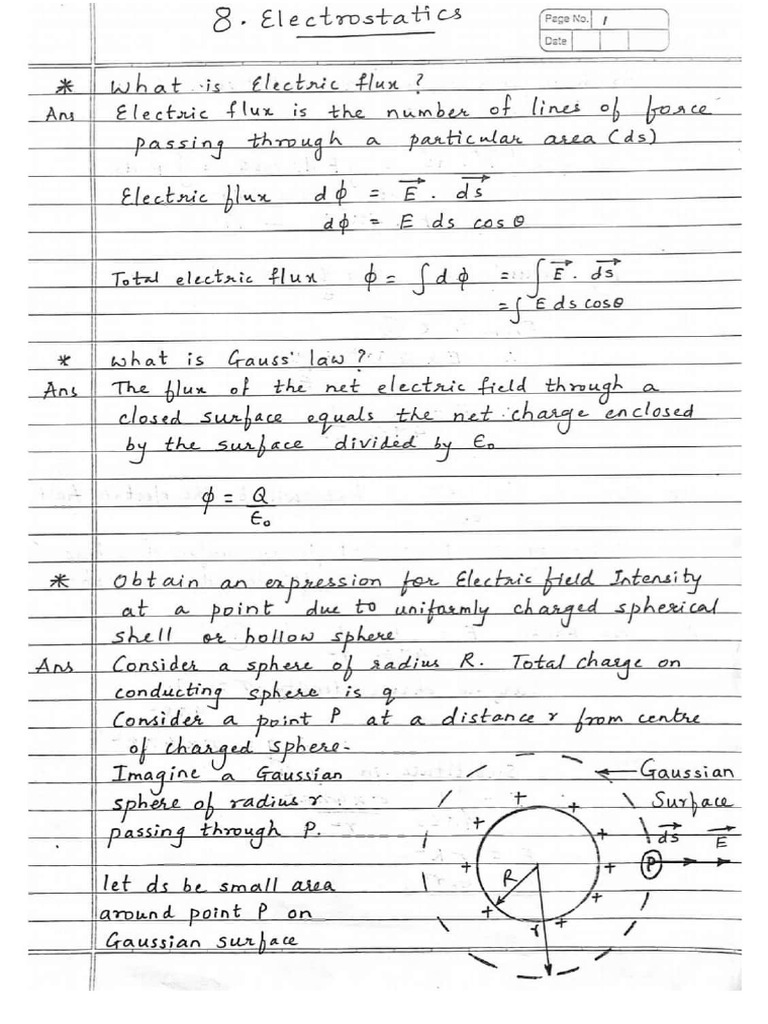 8. Electrostatics
Page No. 1
Date
* What is Electric flux ?
Ans Electric flux is the number of lines of force
passing through a particular area (ds)
Electric flux dϕ = E⃗ . ds⃗
dϕ = E ds cos θ
Total electric flux ϕ = ∫ dϕ = ∫ E⃗ . ds⃗
= ∫ E ds cosθ
* What is Gauss' law ?
Ans The flux of the net electric field through a
closed surface equals the net charge enclosed
by the surface divided by ϵ₀
ϕ = Q/ϵ₀
* Obtain an expression for Electric field Intensity
at a point due to uniformly charged spherical
shell or hollow sphere
Ans Consider a sphere of radius R. Total charge on
conducting sphere is q
Consider a point P at a distance r from centre
of charged sphere-
Imagine a Gaussian
sphere of radius r
passing through P.
let ds be small area
around point P on
Gaussian surface
Gaussian
Surface
ds⃗ E⃗
P
R
r
+ + + + + + + + + +